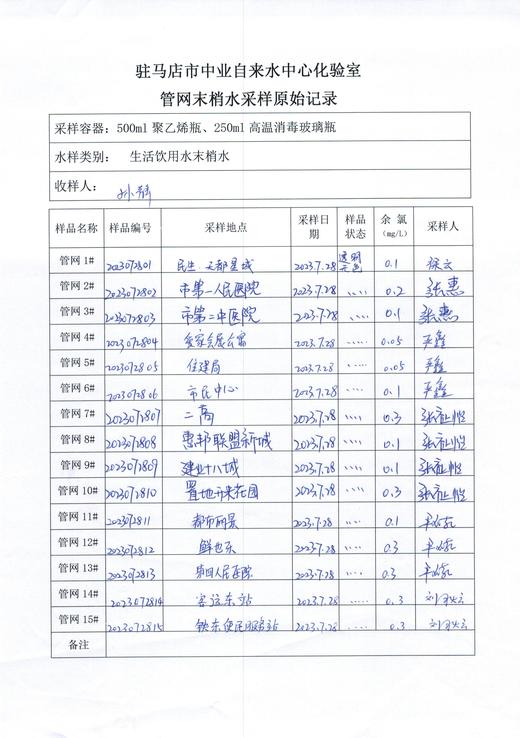 驻马店市中业自来水中心化验室
管网末梢水采样原始记录
采样容器：500ml 聚乙烯瓶、250ml 高温消毒玻璃瓶
水样类别： 生活饮用水末梢水
收样人： 孙静
样品名称 样品编号 采样地点 采样日期 样品状态 余氯（mg/L） 采样人
管网 1# 2023072801 民生 天都星城 2023.7.28 透明无色 0.1
管网 2# 2023072802 市第一人民医院 2023.7.28 ′′′′ 0.2 张惠
管网 3# 2023072803 市第二中医院 2023.7.28 ′′′′ 0.1 张惠
管网 4# 2023072804 2023.7.28 ′′′′ 0.05 严鑫
管网 5# 2023072805 住建局 2023.7.28 ′′′′ 0.05 严鑫
管网 6# 2023072806 市民中心 2023.7.28 ′′′′ 0.1 严鑫
管网 7# 2023072807 二高 2023.7.28 ′′′′ 0.3
管网 8# 2023072808 惠邦联盟新城 2023.7.28 ′′′′ 0.1
管网 9# 2023072809 建业十八城 2023.7.28 ′′′′ 0.1
管网 10# 2023072810 置地未来花园 2023.7.28 ′′′′ 0.3
管网 11# 2023072811 都市丽景 2023.7.28 ′′′′ 0.1
管网 12# 2023072812 2023.7.28 ′′′′ 0.3
管网 13# 2023072813 2023.7.28 ′′′′ 0.3
管网 14# 2023072814 客运东站 2023.7.28 ′′′′ 0.3
管网 15# 2023072815 铁东便民服务站 2023.7.28 ′′′′ 0.3
备注